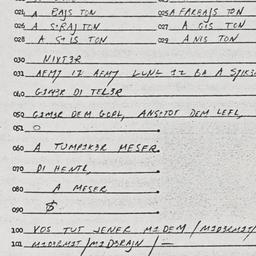 024 A PAJS TON 025 A FARBAJS TON
026 A S:RAJ TON 027 A GIS TON
028 A S:IS TON 029 A NIS TON
030 NIXT3R
031 AFMJ IZ AFMJ LUNG IZ BA A
040 GIM3R DI TEL3R
050 GIM3R DEM GOPL, ANSTOT DEM LEFL,
051
060 A TUMPIK3R MESER.
070 DI HENTL,
080 A MESER
090
100 VOS TUT JENER M1DEM / M1D3RMIT/
101 M1D3RMIT/M1D3RAJN /—